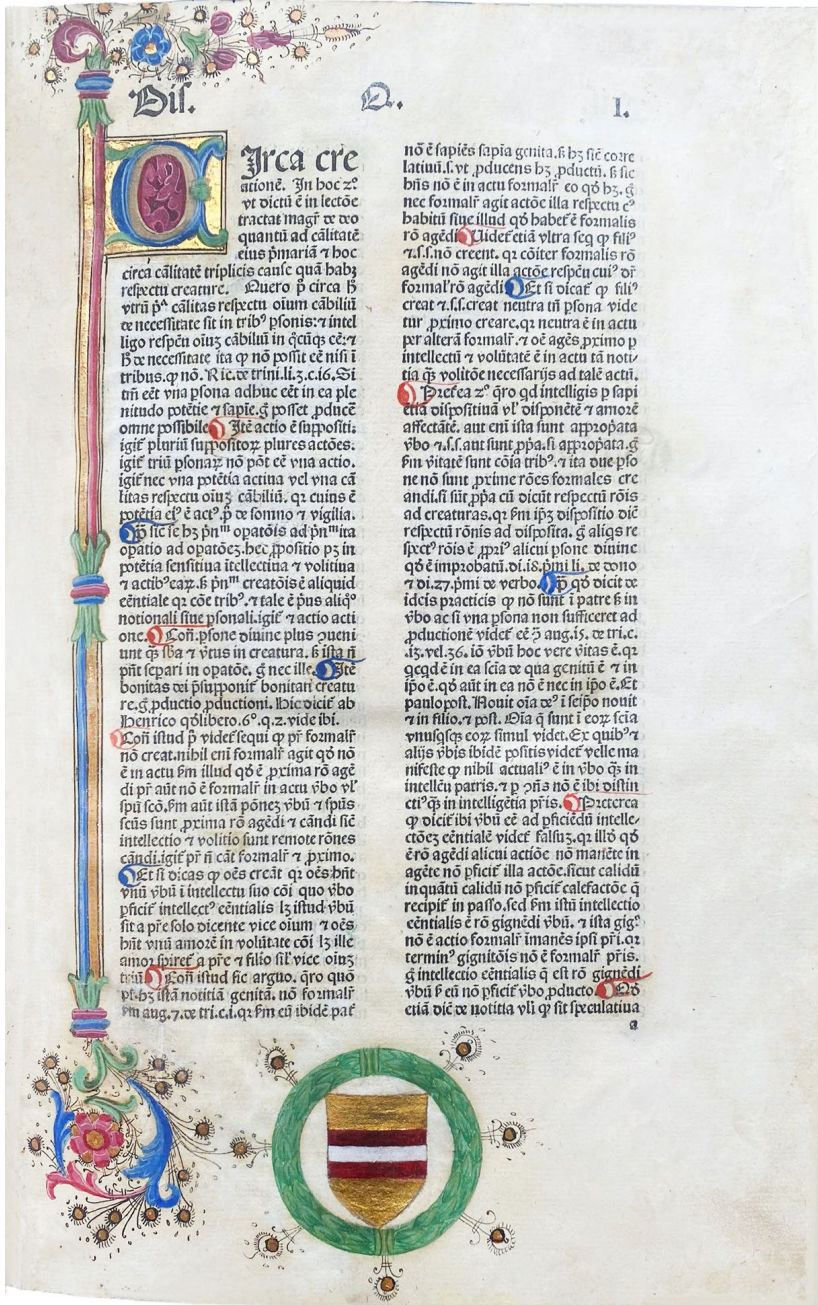 Dis. Q. I.
CIrca cre
ationē. In hoc z°.
vt dictū ē in lectōe
tractat magr̄ de deo
quantū ad cālitatē
eius p̄mariā ⁊ hoc
circa cālitatē triplicis cause quā habꝫ
respectu creature. Quero p̄ circa h̄
vtrū pᵃ cālitas respectu oium cābiliū
de necessitate sit in tribꝰ ꝑsonis:⁊ intel
ligo respectu oiuꝫ cābiliū in q̄cūqꝫ eē:⁊
h̄ de necessitate ita ꝙ nō possit eē nisi ī
tribus.ꝙ nō. Ric.de trini.li.3.c.16. Si
tm̄ eēt vna ꝑsona adhuc eēt in ea ple
nitudo potētie ⁊ sapīe.g̊ posset ꝓducē
omne possibile Itē actio ē suppositi:
igit̄ pluriū suppositoꝝ plures actōes:
igit̄ triū ꝑsonaꝝ nō pōt eē vna actio.
igit̄ nec vna potētia actiua vel vna cā
litas respectu oiuꝫ cābiliū. qr cuius ē
potētia eiꝰ ē actꝰ.p̄ de somno ⁊ vigilia.
ꝙ sic se hꝫ p̄nᵐ oꝑatōis ad p̄nᵐita
oꝑatio ad oꝑatōeꝫ.hec ꝓpositio pꝫ in
potētia sensitiua ītellectiua ⁊ volitiua
⁊ actibꝰ eaꝝ.ſꝫ p̄nᵐ creatōis ē aliquid
eēntiale qr cōe tribꝰ.⁊ tale ē p̄us aliqͦ
notionali siue ꝑsonali.igit̄ ⁊ actio acti
one. Con̄.ꝑsone diuine plus ꝯueni
unt q̄ sb̄a ⁊ v̄tus in creatura. ſꝫ ista n̄
pn̄t seꝑari in oꝑatōe. g̊ nec ille. Itē
bonitas dei p̄supponit̄ bonitati creatu
re.g̊.ꝓductio ꝓductioni. Hic dicit̄ ab
Henrico qd̄libeto.6°.q.2.vide ibi.
Con̄ istud p̄ videt̄ sequi ꝙ pr̄ formalr̄
nō creat.nihil enī formalr̄ agit qd̄ nō
ē in actu ẜm illud qd̄ ē ꝓxima rō agē
di pr̄ aūt nō ē formalr̄ in actu v̄bo vl̓
spū scō.ẜm aūt istā pōneꝫ v̄bū ⁊ spūs
scūs sunt ꝓxima rō agēdi ⁊ cāndi siē
intellectio ⁊ volitio sunt remote rōnes
cāndi.igit̄ pr̄ n̄ cāt formalr̄ ⁊ ꝓximo.
Et si dicas ꝙ oēs creāt qr oēs hn̄t
vnū v̄bū ī intellectu suo cōi quo v̄bo
ꝑficit̄ intellectꝰ eēntialis lꝫ istud v̄bū
sit a pr̄e solo dicente vice oium ⁊ oēs
hn̄t vnū amorē in volūtate cōi lꝫ ille
amor spiret̄ a pr̄e ⁊ filio sil̓ vice oiuꝫ
triū Con̄ istud sic arguo. q̄ro quō
pr̄.hꝫ istā notitiā genitā. nō formalr̄
ẜm aug.7.de tri.c.i.qr ẜm eū ibidē pat̄
nō ē sapiēs sapīa genita.ſꝫ hꝫ siē corre
latiuū.s.vt ꝓducens hꝫ ꝓductū. ſꝫ sic
hn̄s nō ē in actu formalr̄ eo qd̄ hꝫ. g̊
nec formalr̄ agit actōe illa respectu cꝰ
habitū siue illud qd̄ habet̄ ē formalis
rō agēdi Videt̄ etiā vltra seq ꝙ filiꝰ
⁊.s.s.nō creent. qr cōiter formalis rō
agēdi nō agit illa actōe respectu cuiꝰ dr̄
formal̓ rō agēdi Et si dicat̄ ꝙ filiꝰ
creat ⁊.s.s.creat neutra tn̄ ꝑsona vide
tur ꝓximo creare.qr neutra ē in actu
per alterā formalr̄.⁊ oē agēs ꝓximo ꝑ
intellectū ⁊ volūtatē ē in actu tā noti-
tia qꝫ volitōe necessarijs ad talē actū.
Pret̄ea z° q̄ro qd intelligis ꝑ sapi
entiā dispositiuā vl̓ disponētē ⁊ amorē
affectātē. aut enī ista sunt approp̄ata
v̄bo ⁊.s.s.aut sunt ꝓpa.si approp̄ata.g̊
ẜm v̄itatē sunt cōia tribꝰ.⁊ ita due ꝑso
ne nō sunt ꝓxime rōes formales cre
andi.si sūt ꝓpa cū dicūt respectū rōis
ad creaturas.qr ẜm ip̄ꝫ dispositio diē
respectū rōnis ad disposita. g̊ aliqs re
spectꝰ rōis ē ꝓpriꝰ alicui ꝑsone diuine
qd̄ ē improbatū.di.18.p̄mi li. de dono
⁊ di.27.p̄mi de verbo. ꝙ qd̄ dicit de
ideis practicis ꝙ nō sunt ī patre ſꝫ in
v̄bo ac si vna ꝑsona non sufficeret ad
ꝓductionē videt̄ eē ꝯ̄ aug.15. de tri.c.
.13.vel.36. iō v̄bū hoc vere v̄itas ē.qr
qcqd ē in ea scīa de qua genitū ē ⁊ in
ip̄o ē.qd̄ aūt in ea nō ē nec in ip̄o ē.Et
paulo post. Nouit oīa deꝰ ī seip̄o nouit
⁊ in filio.⁊ post. Oīa q̄ sunt ī eoꝝ scīa
vnusqsqꝫ eoꝝ simul videt.Ex quibꝰ ⁊
alijs v̄bis ibidē positis videt̄ velle ma
nifeste ꝙ nihil actualiꝰ ē in v̄bo qꝫ in
intellcū patris.⁊ ꝑ ꝯn̄s nō ē ibi distin
ctiꝰ qꝫ in intelligētia pr̄is. Preterea
ꝙ dicit̄ ibi v̄bū eē ad ꝑficiēdū intelle-
ctōeꝫ eēntialē videt̄ falsuꝫ.qr illd̄ qd̄
ē rō agēdi alicui actiōe nō manēte in
agēte nō ꝑficit̄ illa actōe.sicut calidū
in quātū calidū nō ꝑficit̄ calefactōe q̄
recipit̄ in passo.sed ẜm istū intellectio
eēntialis ē rō gignēdi v̄bū. ⁊ ista gigꝰ
nō ē actio formalr̄ īmanēs ipsi pr̄i.qr
terminꝰ gignitōis nō ē formalr̄ pr̄is.
g̊ intellectio eēntialis q̄ est rō gignēdi
v̄bū ſꝫ eū nō ꝑficit̄ v̄bo ꝓducto. Qd̄
etiā diē de notitia vl̓i ꝙ sit speculatiua
a